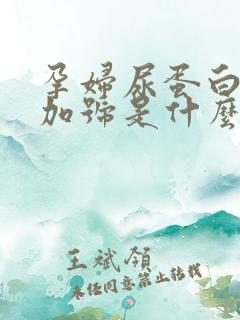 孕婦尿蛋白
加號是什麼
王斌領
未經同意禁止轉載